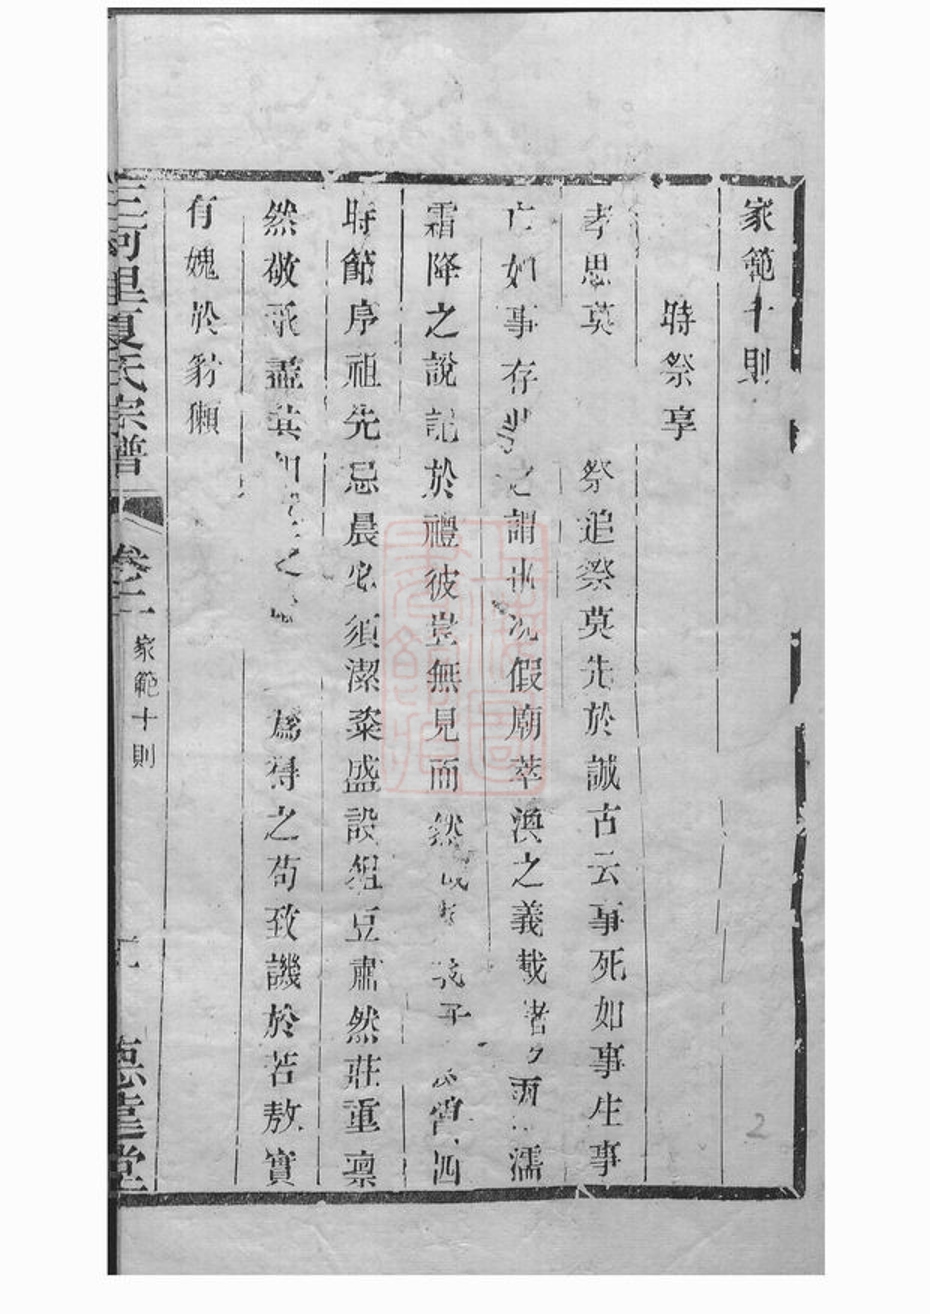 家範十則
時祭享
孝思莫祭追祭莫先於誠古云事死如事生事
亡如事存此之謂也况假廟萃渙之義載者雨濡
霜降之說記於禮彼豈無見而然我子當四
時節序祖先忌晨必須潔粢盛設俎豆肅然莊重凛
然敬承盡其如之為得之苟致譏於若敖實
有媿於豺獺
三河里夏氏宗譜
卷二
家範十則
德星堂
2